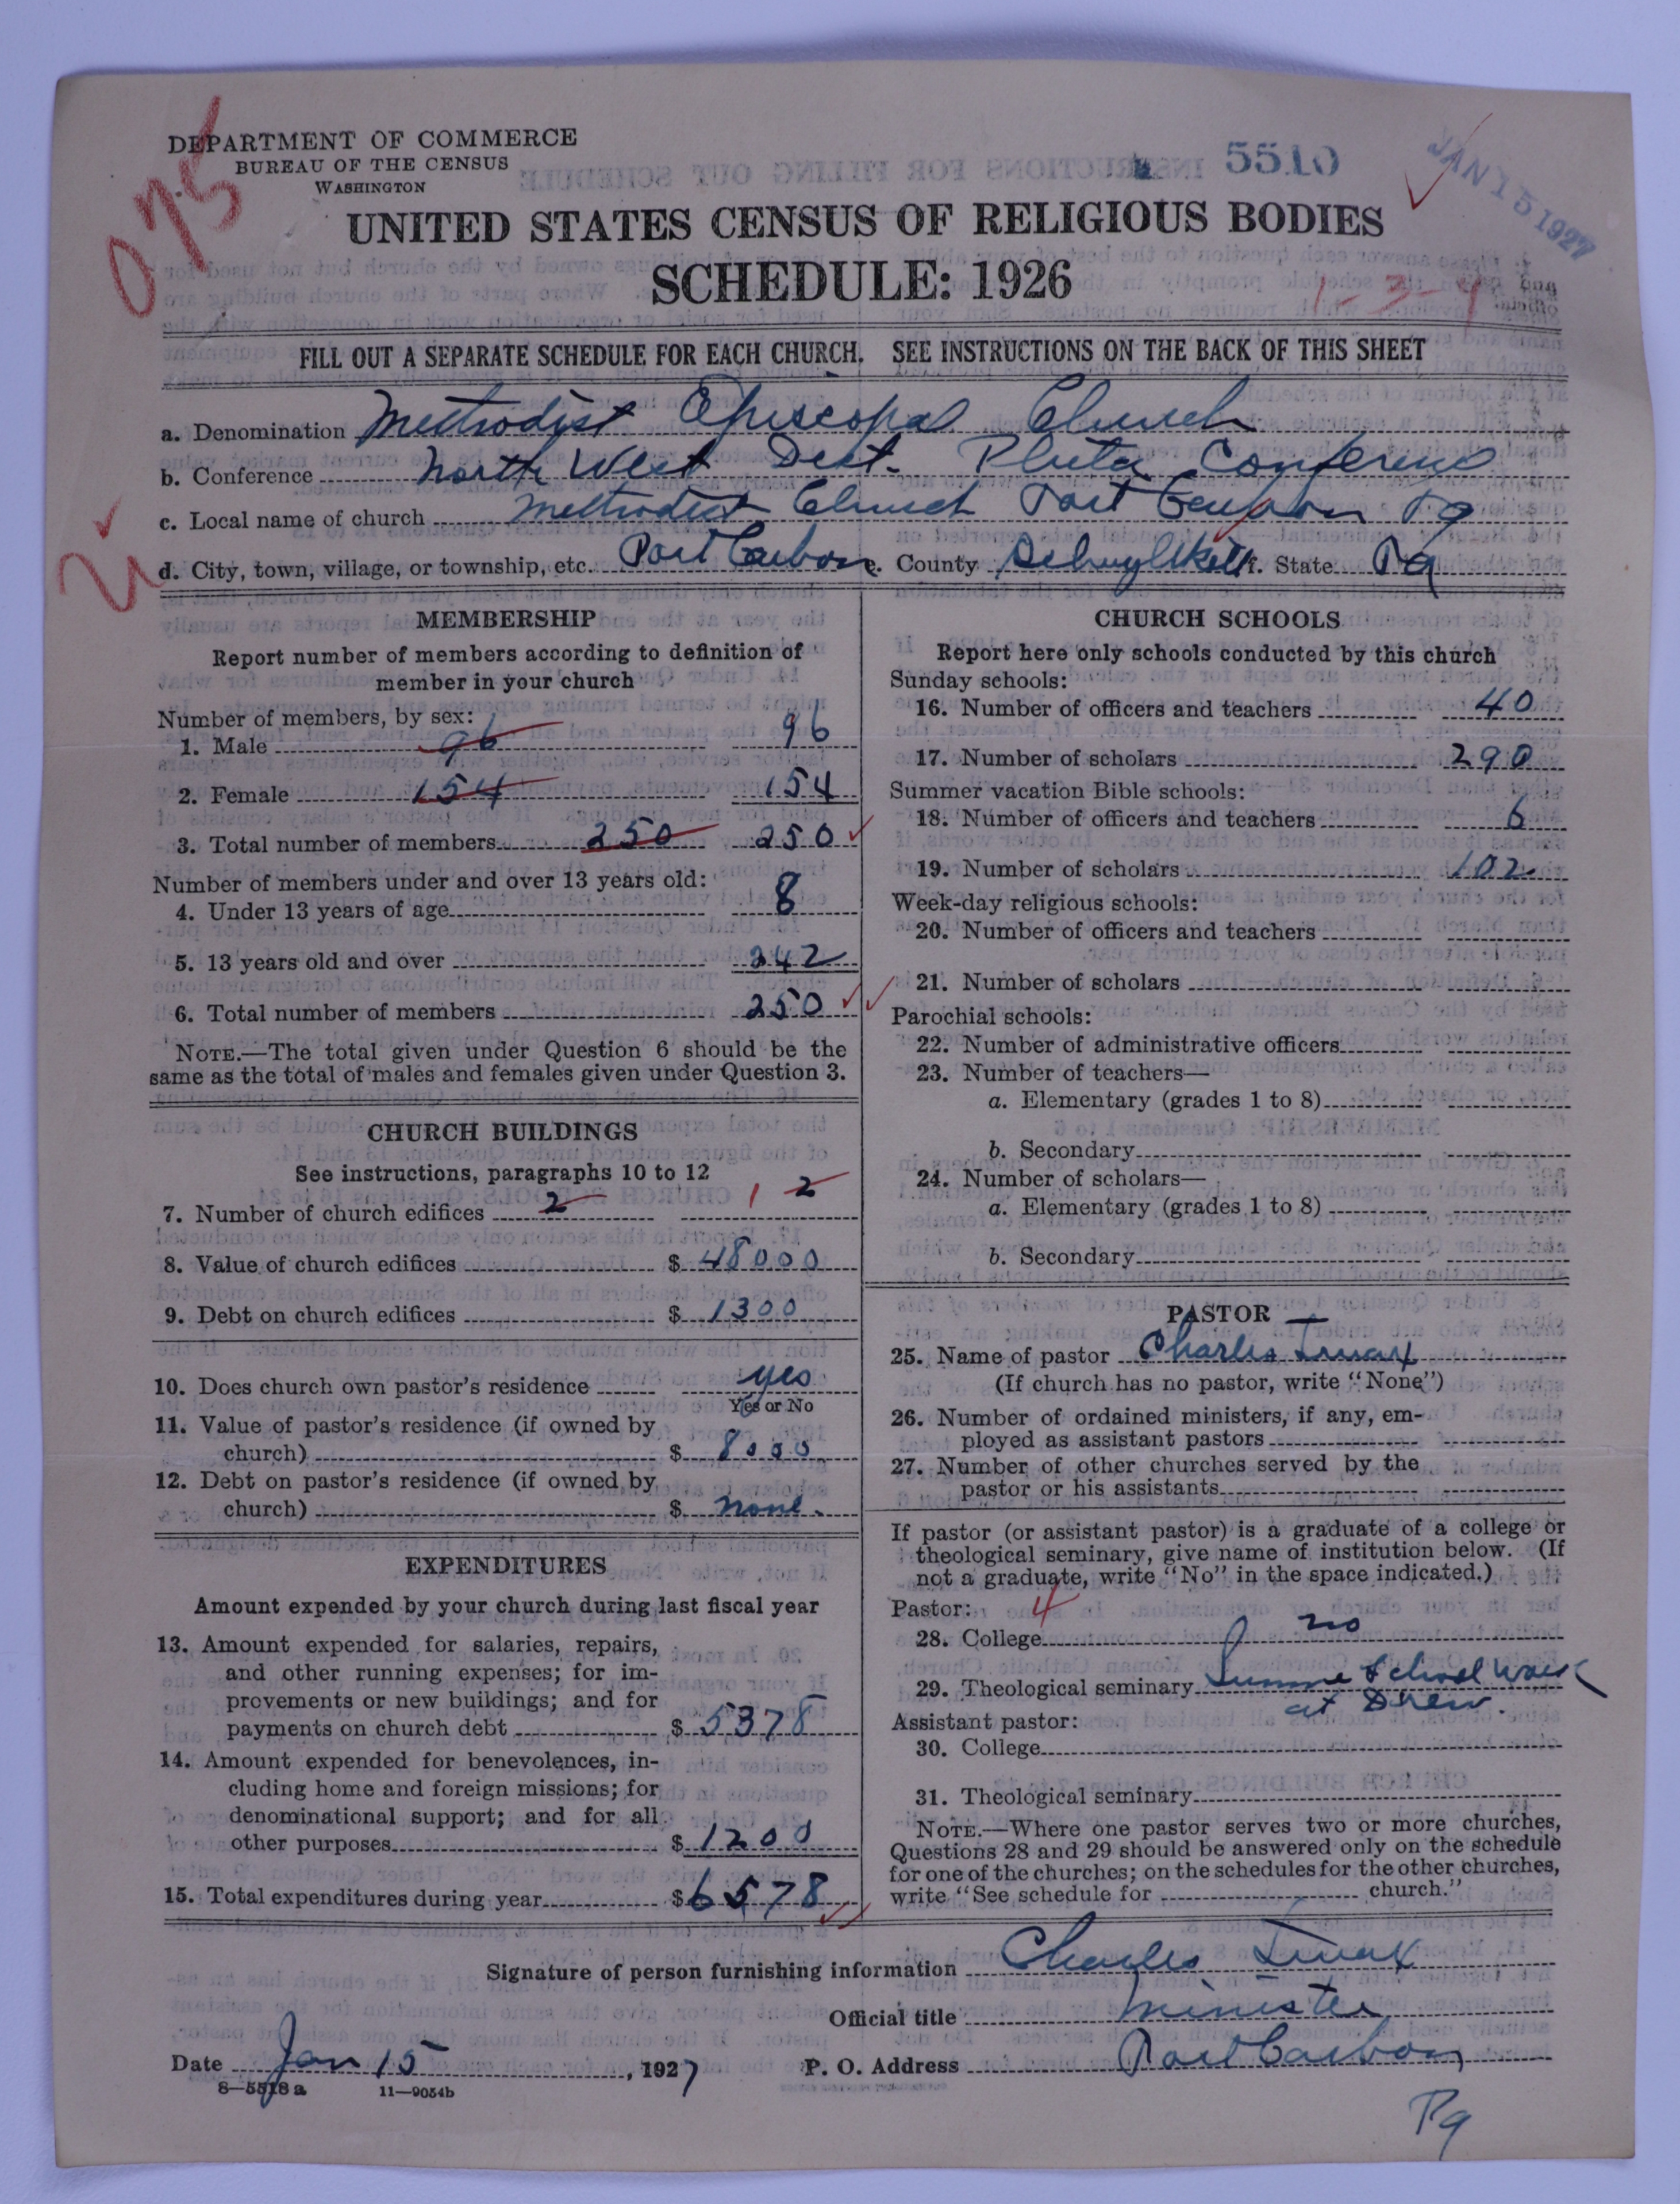 DEPARTMENT OF COMMERCE
BUREAU OF THE CENSUS
WASHINGTON
075
5510
JAN 15 1927
UNITED STATES CENSUS OF RELIGIOUS BODIES
SCHEDULE: 1926
1-3-4
FILL OUT A SEPARATE SCHEDULE FOR EACH CHURCH. SEE INSTRUCTIONS ON THE BACK OF THIS SHEET
a. Denomination Methodist Episcopal Church
b. Conference North West Dist. Phila Conference
c. Local name of church Methodist Church Port Carbon Pa
d. City, town, village, or township, etc. Port Carbon e. County Schuylkill f. State Pa
MEMBERSHIP
Report number of members according to definition of
member in your church
Number of members, by sex:
1. Male 96 96
2. Female 154 154
3. Total number of members 250 250
Number of members under and over 13 years old:
4. Under 13 years of age 8
5. 13 years old and over 242
6. Total number of members 250
NOTE.—The total given under Question 6 should be the
same as the total of males and females given under Question 3.
CHURCH BUILDINGS
See instructions, paragraphs 10 to 12
7. Number of church edifices 2 1 2
8. Value of church edifices $ 48000
9. Debt on church edifices $ 1300
10. Does church own pastor's residence yes
Yes or No
11. Value of pastor's residence (if owned by
church) $ 8000
12. Debt on pastor's residence (if owned by
church) $ none.
EXPENDITURES
Amount expended by your church during last fiscal year
13. Amount expended for salaries, repairs,
and other running expenses; for im-
provements or new buildings; and for
payments on church debt $ 5378
14. Amount expended for benevolences, in-
cluding home and foreign missions; for
denominational support; and for all
other purposes $ 1200
15. Total expenditures during year $ 6578
CHURCH SCHOOLS
Report here only schools conducted by this church
Sunday schools:
16. Number of officers and teachers 40
17. Number of scholars 290
Summer vacation Bible schools:
18. Number of officers and teachers 6
19. Number of scholars 102
Week-day religious schools:
20. Number of officers and teachers
21. Number of scholars
Parochial schools:
22. Number of administrative officers
23. Number of teachers—
a. Elementary (grades 1 to 8)
b. Secondary
24. Number of scholars—
a. Elementary (grades 1 to 8)
b. Secondary
PASTOR
25. Name of pastor Charles
(If church has no pastor, write "None")
26. Number of ordained ministers, if any, em-
ployed as assistant pastors
27. Number of other churches served by the
pastor or his assistants
If pastor (or assistant pastor) is a graduate of a college or
theological seminary, give name of institution below. (If
not a graduate, write "No" in the space indicated.)
Pastor: 4
28. College no
29. Theological seminary Summer School work
at Drew.
Assistant pastor:
30. College
31. Theological seminary
NOTE.—Where one pastor serves two or more churches,
Questions 28 and 29 should be answered only on the schedule
for one of the churches; on the schedules for the other churches,
write "See schedule for church."
Signature of person furnishing information Charles
Official title Minister
Date Jan 15, 1927 P. O. Address Port Carbon
Pa
8—5518 a 11—9054b